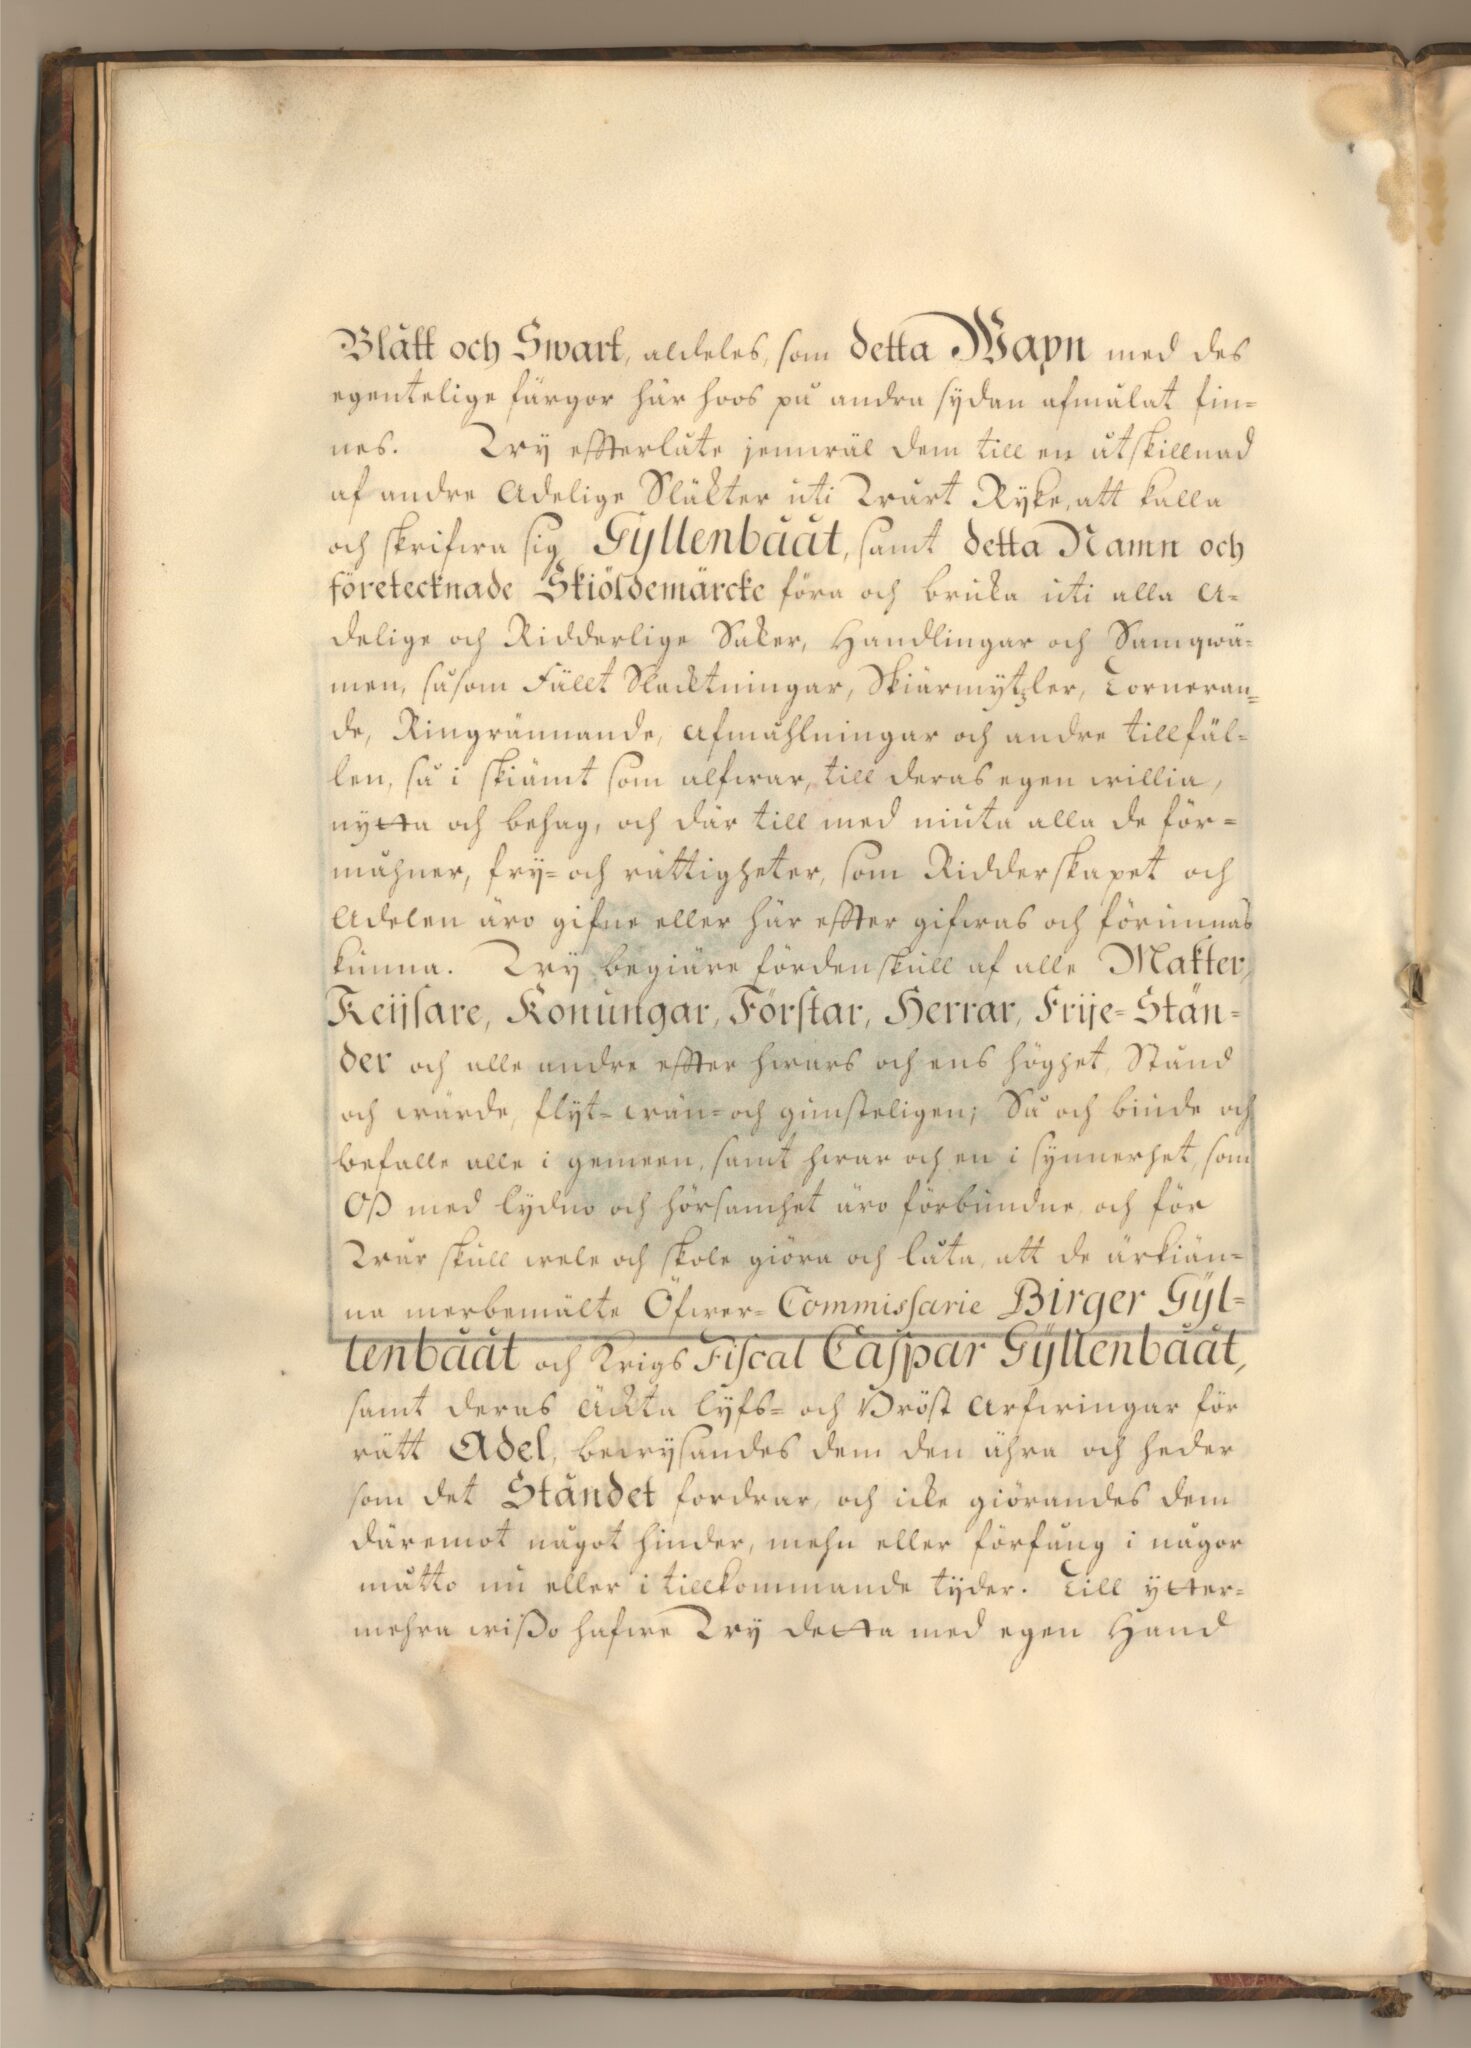 Blått och Swart, aldeles, som detta Wapn med des
egentelige färgor här hoos på andra sydan afmålat fin-
nes. Wy effterlåte jemwäl dem till en åtskillnad
af andre Adelige Släkter uti Wårt Ryke, att kalla
och skrifwa sig Gyllenbååt, samt detta Namn och
företecknade Skiöldemärcke föra och bruka uti alla A-
delige och Ridderlige Saker, Handlingar och Samqwä-
men, såsom Fällt Slacktningar, Skiärmytzler, Torneran-
de, Ringrännande, Afmåhlningar och andre tillfäl-
len, så i skiämt som alfwar, till deras egen willia,
nytta och behag, och där till med niuta alla de för-
måhner, fry- och rättigheter, som Ridderskapet och
Adelen äro gifne eller här effter gifwas och förunnas
kunna. Wy begiäre fördenskull af alle Makter,
Keijsare, Konungar, Förstar, Herrar, Frije-Stän-
der och alle andre effter hwars och ens höghet, Stånd
och wärde, flyt- wän- och gunsteligen; Så och biude och
befalle alle i gemeen, samt hwar och en i synnerhet, som
Oß med lydno och hörsamhet äro förbundne, och för
Wår skull wele och skole giöra och låta, att de ärkiän-
na merbemälte Öfwer-Commissarie Birger Gÿl-
lenbååt och Krigs Fiscal Caspar Gÿllenbååt,
samt deras Äkta lyfs- och Bröst Arfwingar för
rätt Adel, bewysandes dem den ähra och heder
som det Ståndet fordrar, och icke giörandes dem
däremot något hinder, mehn eller förfång i någor
måtto nu eller i tillkommande tyder. Till ytter-
mehra wißo hafwe Wy detta med egen Hand